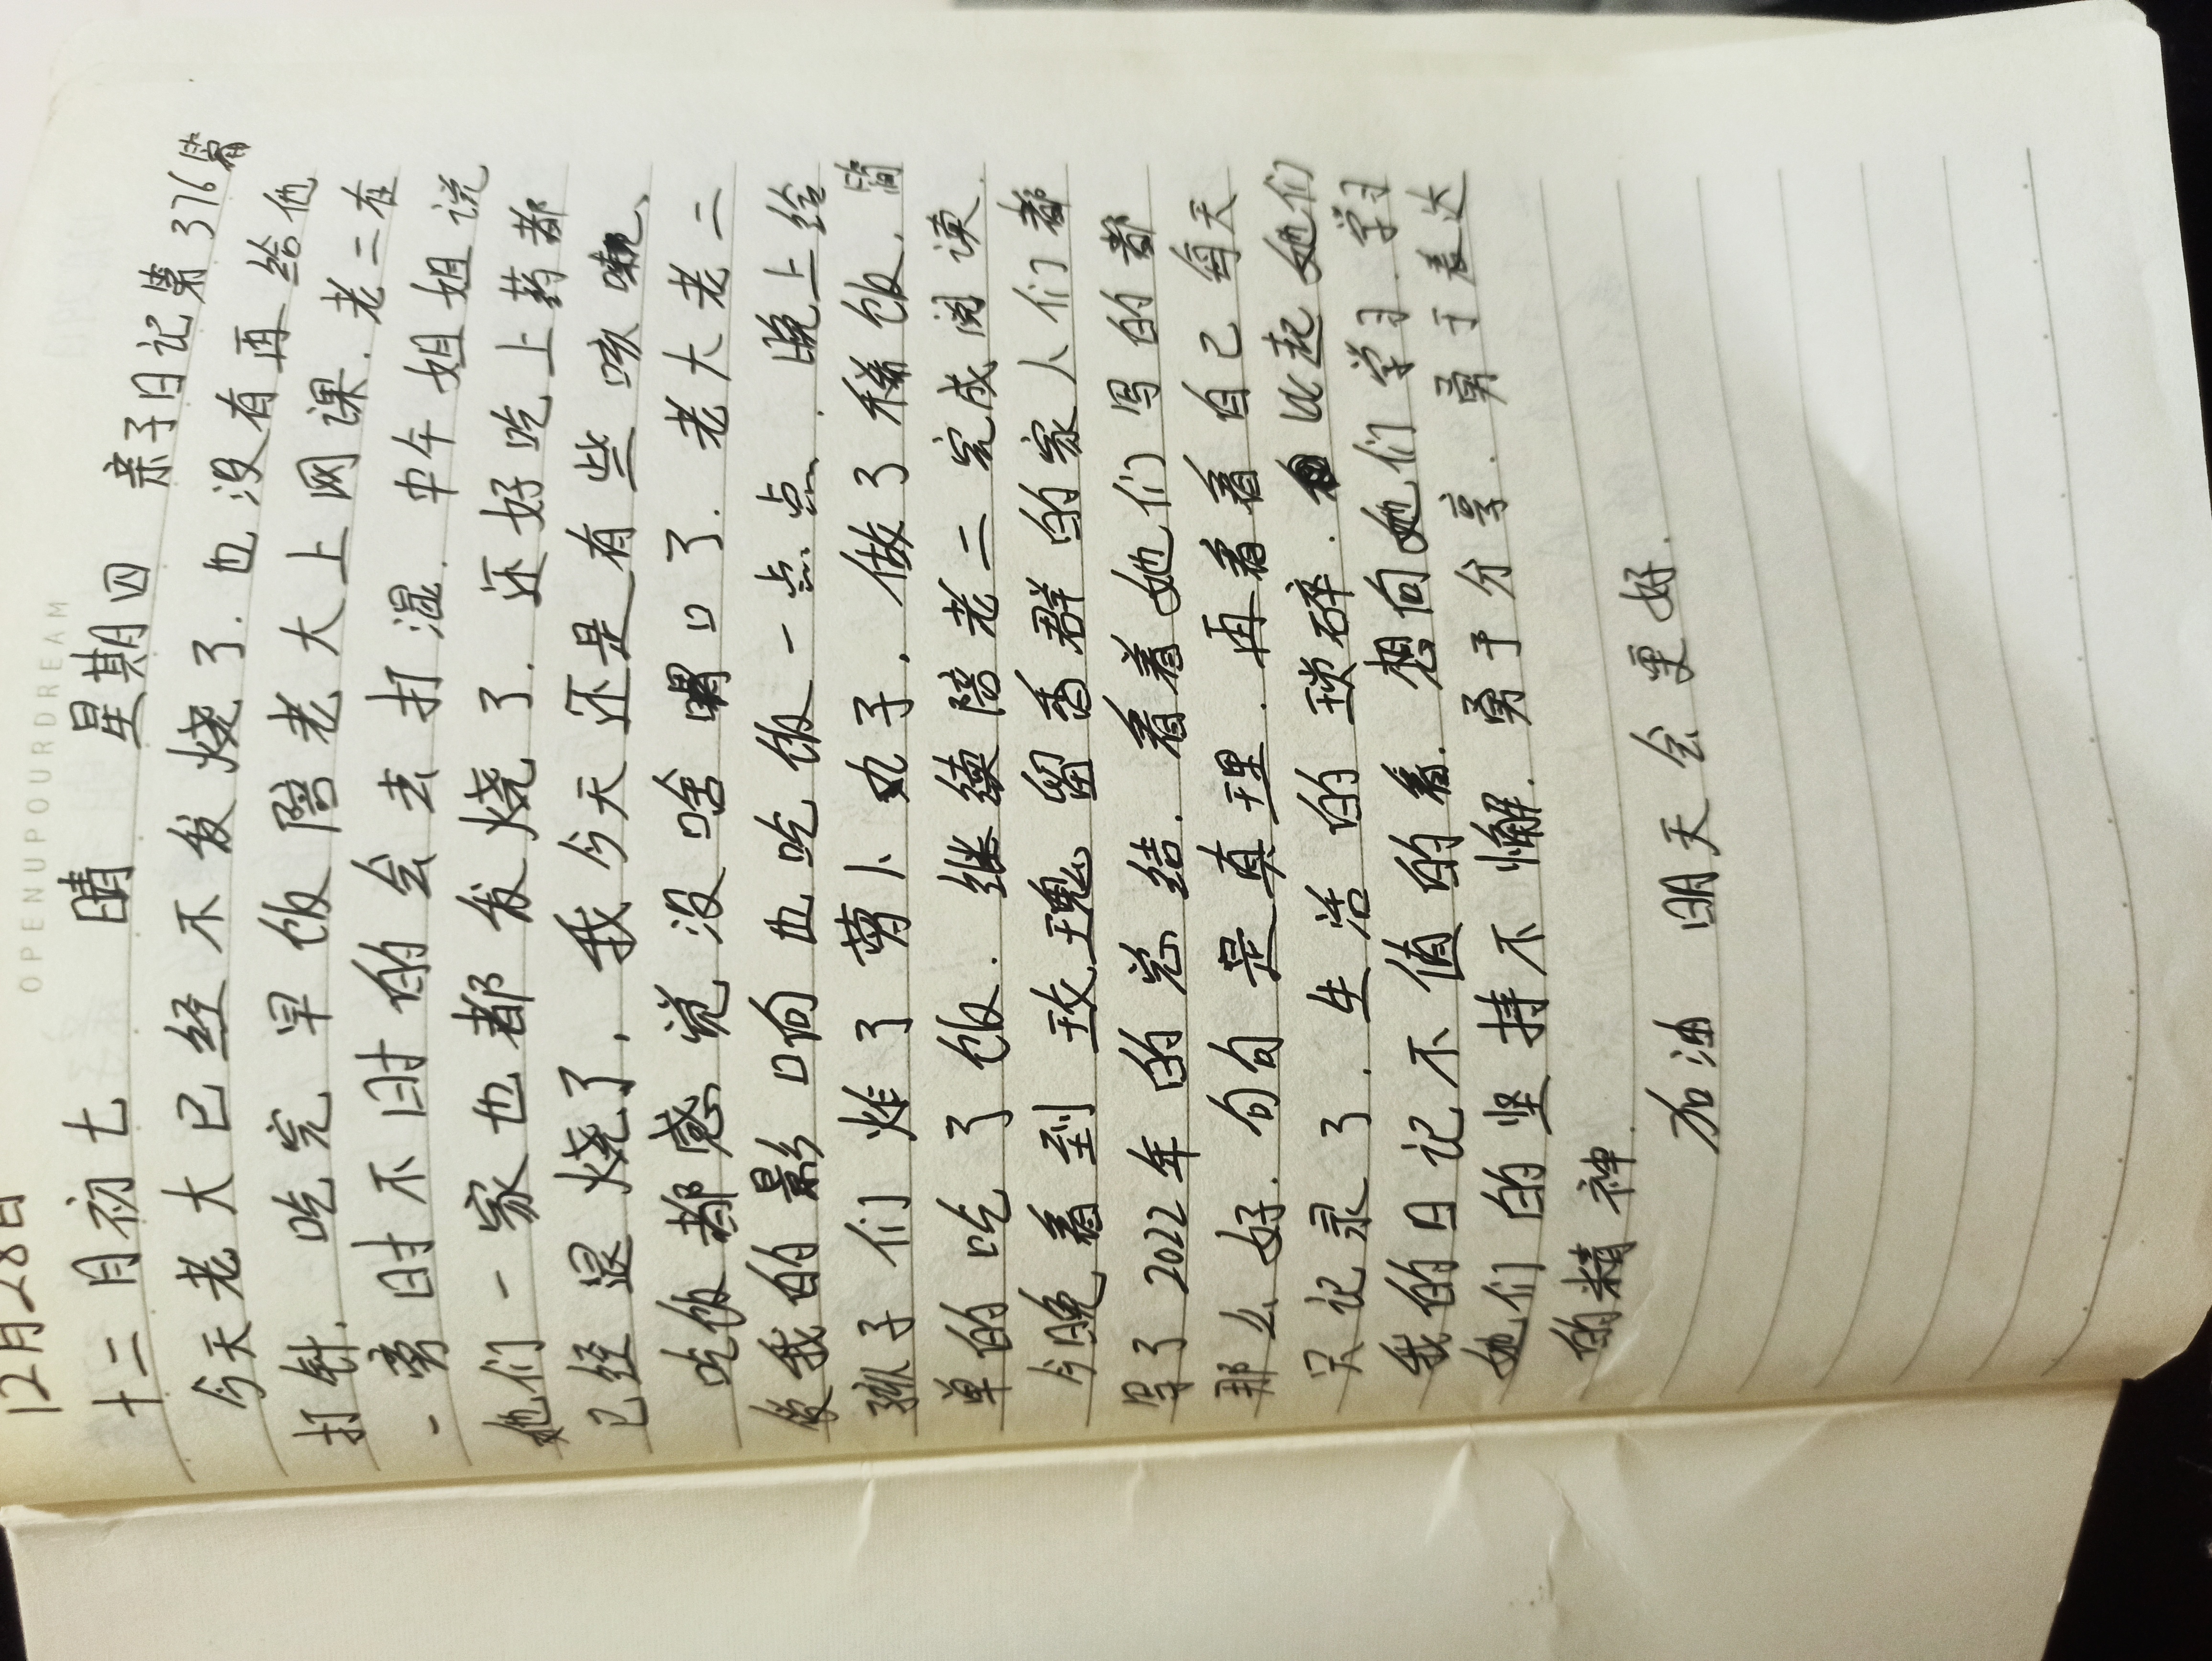 OPENUPOURDREAM
12月28日
十二月初七 晴 星期四 亲子日记第376篇
今天老大已经不发烧了.也没有再给他
打针.吃完早饭陪老大上网课.老二在
一旁时不时的会去打混.中午姐姐说
她们一家也都发烧了.还好吃上药都
已经退烧了.我今天还是有些咳嗽、
吃饭都感觉没啥胃口了.老大老二
像我的影响也吃饭一点点.晚上给
孩子们炸了萝卜丸子.做了稀饭.简
单的吃了饭.继续陪老二完成阅读.
今晚看到玫瑰留香群的家人们都
写了2022年的总结.看着她们写的都
那么好.句句是真理.再看看自己每天
只记录了.生活的琐碎.比起她们
我的日记不值的看.想向她们学习.学习
她们的坚持不懈.勇于分享.勇于表达
的精神.
加油 明天会更好.